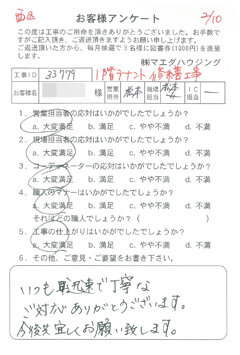 西区
お客様アンケート
2/10
この度は工事のご用命を頂きありがとうございました。お手数で
すがご記入頂き、ご返送頂きますようお願い申し上げます。
ご返送頂いた方から、毎月抽選で3名様に図書券(1000円)を進呈
します。
㈱マエダハウジング
工事ID 33779 1階テナント 修繕工事
お客様名 様 営業担当 現場担当 IC担当 ー
1.営業担当者の応対はいかがでしたでしょうか?
a.大変満足 b.満足 c.やや不満 d.不満
2.現場担当者の応対はいかがでしたでしょうか?
a.大変満足 b.満足 c.やや不満 d.不満
3.コーディネーターの応対はいかがでしたでしょうか?
a.大変満足 b.満足 c.やや不満 d.不満
4.職人のマナーはいかがでしたでしょうか?
a.大変満足 b.満足 c.やや不満 d.不満
それはどの職人でしょうか?( )
5.工事の仕上がりはいかがでしたでしょうか?
a.大変満足 b.満足 c.やや不満 d.不満
6.その他、ご意見・ご要望をお書き下さい。
いつも迅速で丁寧な
ご対応ありがとうございます。
今後共宜しくお願い致します。